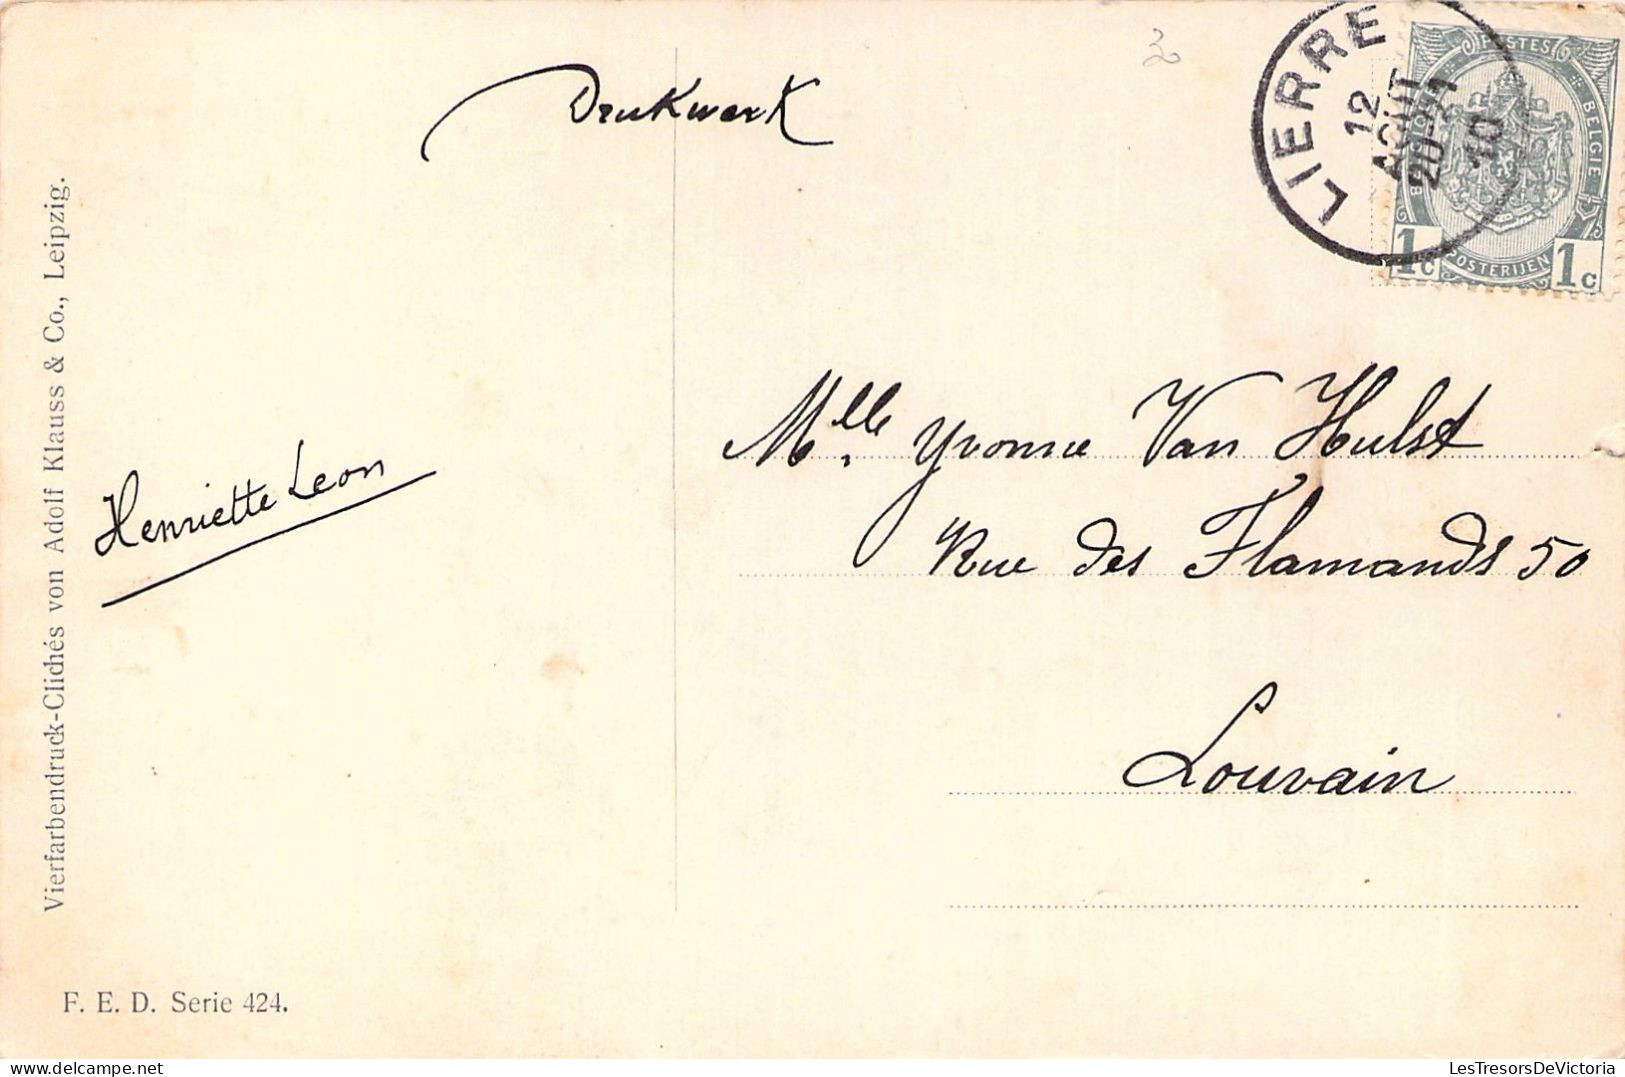 Drukwerk
LIERRE
12
AOUT
20-21
10
POSTES
BELGIE
POSTERIJEN
1c 1c
Mlle. Yvonne Van Hulst
Rue des Flamands 50
Louvain
Henriette Leon
Vierfarbendruck-Clichés von Adolf Klauss & Co., Leipzig.
F. E. D. Serie 424.
LesTresorsDeVictoria
delcampe.net